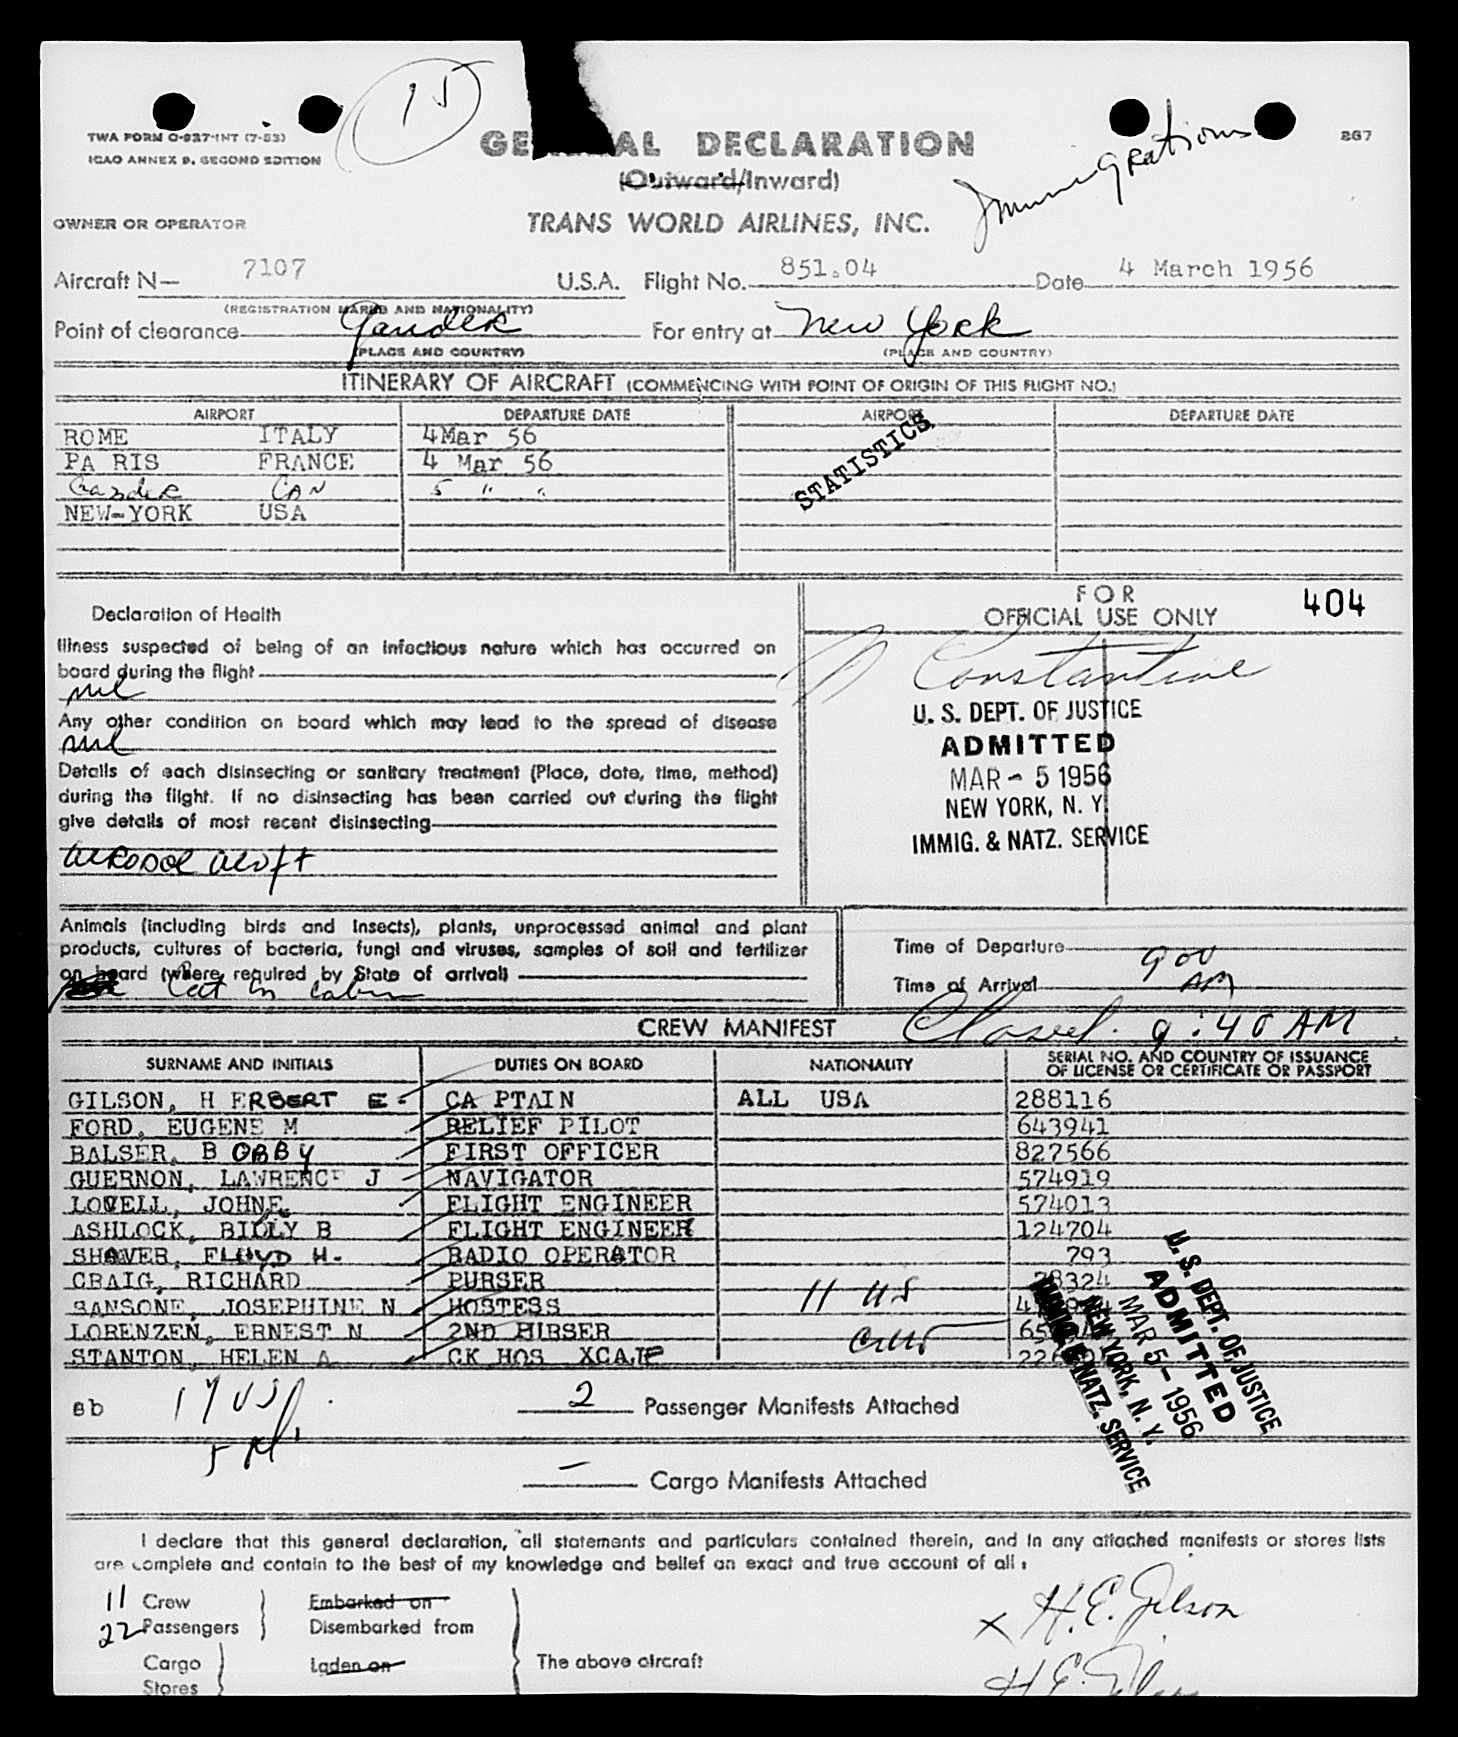 15
TWA FORM O-927-INT (7-53)
ICAO ANNEX 9, SECOND EDITION
GE AL DECLARATION
(Outward/Inward)
Immigrations
267
OWNER OR OPERATOR
TRANS WORLD AIRLINES, INC.
Aircraft N— 7107 U.S.A. Flight No. 851.04 Date 4 March 1956
(REGISTRATION MARKS AND NATIONALITY)
Point of clearance Gander For entry at New York
(PLACE AND COUNTRY) (PLACE AND COUNTRY)
ITINERARY OF AIRCRAFT (COMMENCING WITH POINT OF ORIGIN OF THIS FLIGHT NO.)
AIRPORT DEPARTURE DATE AIRPORT DEPARTURE DATE
ROME ITALY 4Mar 56
PA RIS FRANCE 4 Mar 56
Gander CAN 5 " "
NEW-YORK USA
STATISTICS
Declaration of Health
Illness suspected of being of an infectious nature which has occurred on
board during the flight
nil
Any other condition on board which may lead to the spread of disease
nil
Details of each disinsecting or sanitary treatment (Place, date, time, method)
during the flight. If no disinsecting has been carried out during the flight
give details of most recent disinsecting
aerosol aloft
FOR
OFFICIAL USE ONLY
404
Constantine
U. S. DEPT. OF JUSTICE
ADMITTED
MAR - 5 1956
NEW YORK, N. Y.
IMMIG. & NATZ. SERVICE
Animals (including birds and insects), plants, unprocessed animal and plant
products, cultures of bacteria, fungi and viruses, samples of soil and fertilizer
on board (where required by State of arrival)
Cat in cabin
Time of Departure
Time of Arrival 900 AM
Closed. 9:40 AM
CREW MANIFEST
SURNAME AND INITIALS DUTIES ON BOARD NATIONALITY SERIAL NO. AND COUNTRY OF ISSUANCE
OF LICENSE OR CERTIFICATE OR PASSPORT
GILSON, H ERBERT E. CA PTAIN ALL USA 288116
FORD, EUGENE M RELIEF PILOT 643941
BALSER, B OBBY FIRST OFFICER 827566
GUERNON, LAWRENCE J NAVIGATOR 574919
LOVELL, JOHN E. FLIGHT ENGINEER 574013
ASHLOCK, BILLY B FLIGHT ENGINEER 124704
SHAVER, FLOYD H. RADIO OPERATOR 793
CRAIG, RICHARD PURSER 324
SANSONE, JOSEPHINE N HOSTESS
LORENZEN, ERNEST N 2ND PURSER
STANTON, HELEN A CK HOS XCAIP
11 US
Crew
U. S. DEPT. OF JUSTICE
ADMITTED
MAR 5- 1956
NEW YORK, N. Y.
IMMIG. & NATZ. SERVICE
sb 17 US
2 Passenger Manifests Attached
5 Al.
— Cargo Manifests Attached
I declare that this general declaration, all statements and particulars contained therein, and in any attached manifests or stores lists
are complete and contain to the best of my knowledge and belief an exact and true account of all :
11 Crew Embarked on
22 Passengers Disembarked from
Cargo Laden on The above aircraft
Stores
X H. E. Gilson
H. E. Gilson